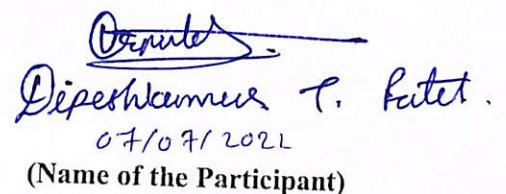 Dipeshkumar T. Patel.
07/07/2022
(Name of the Participant)